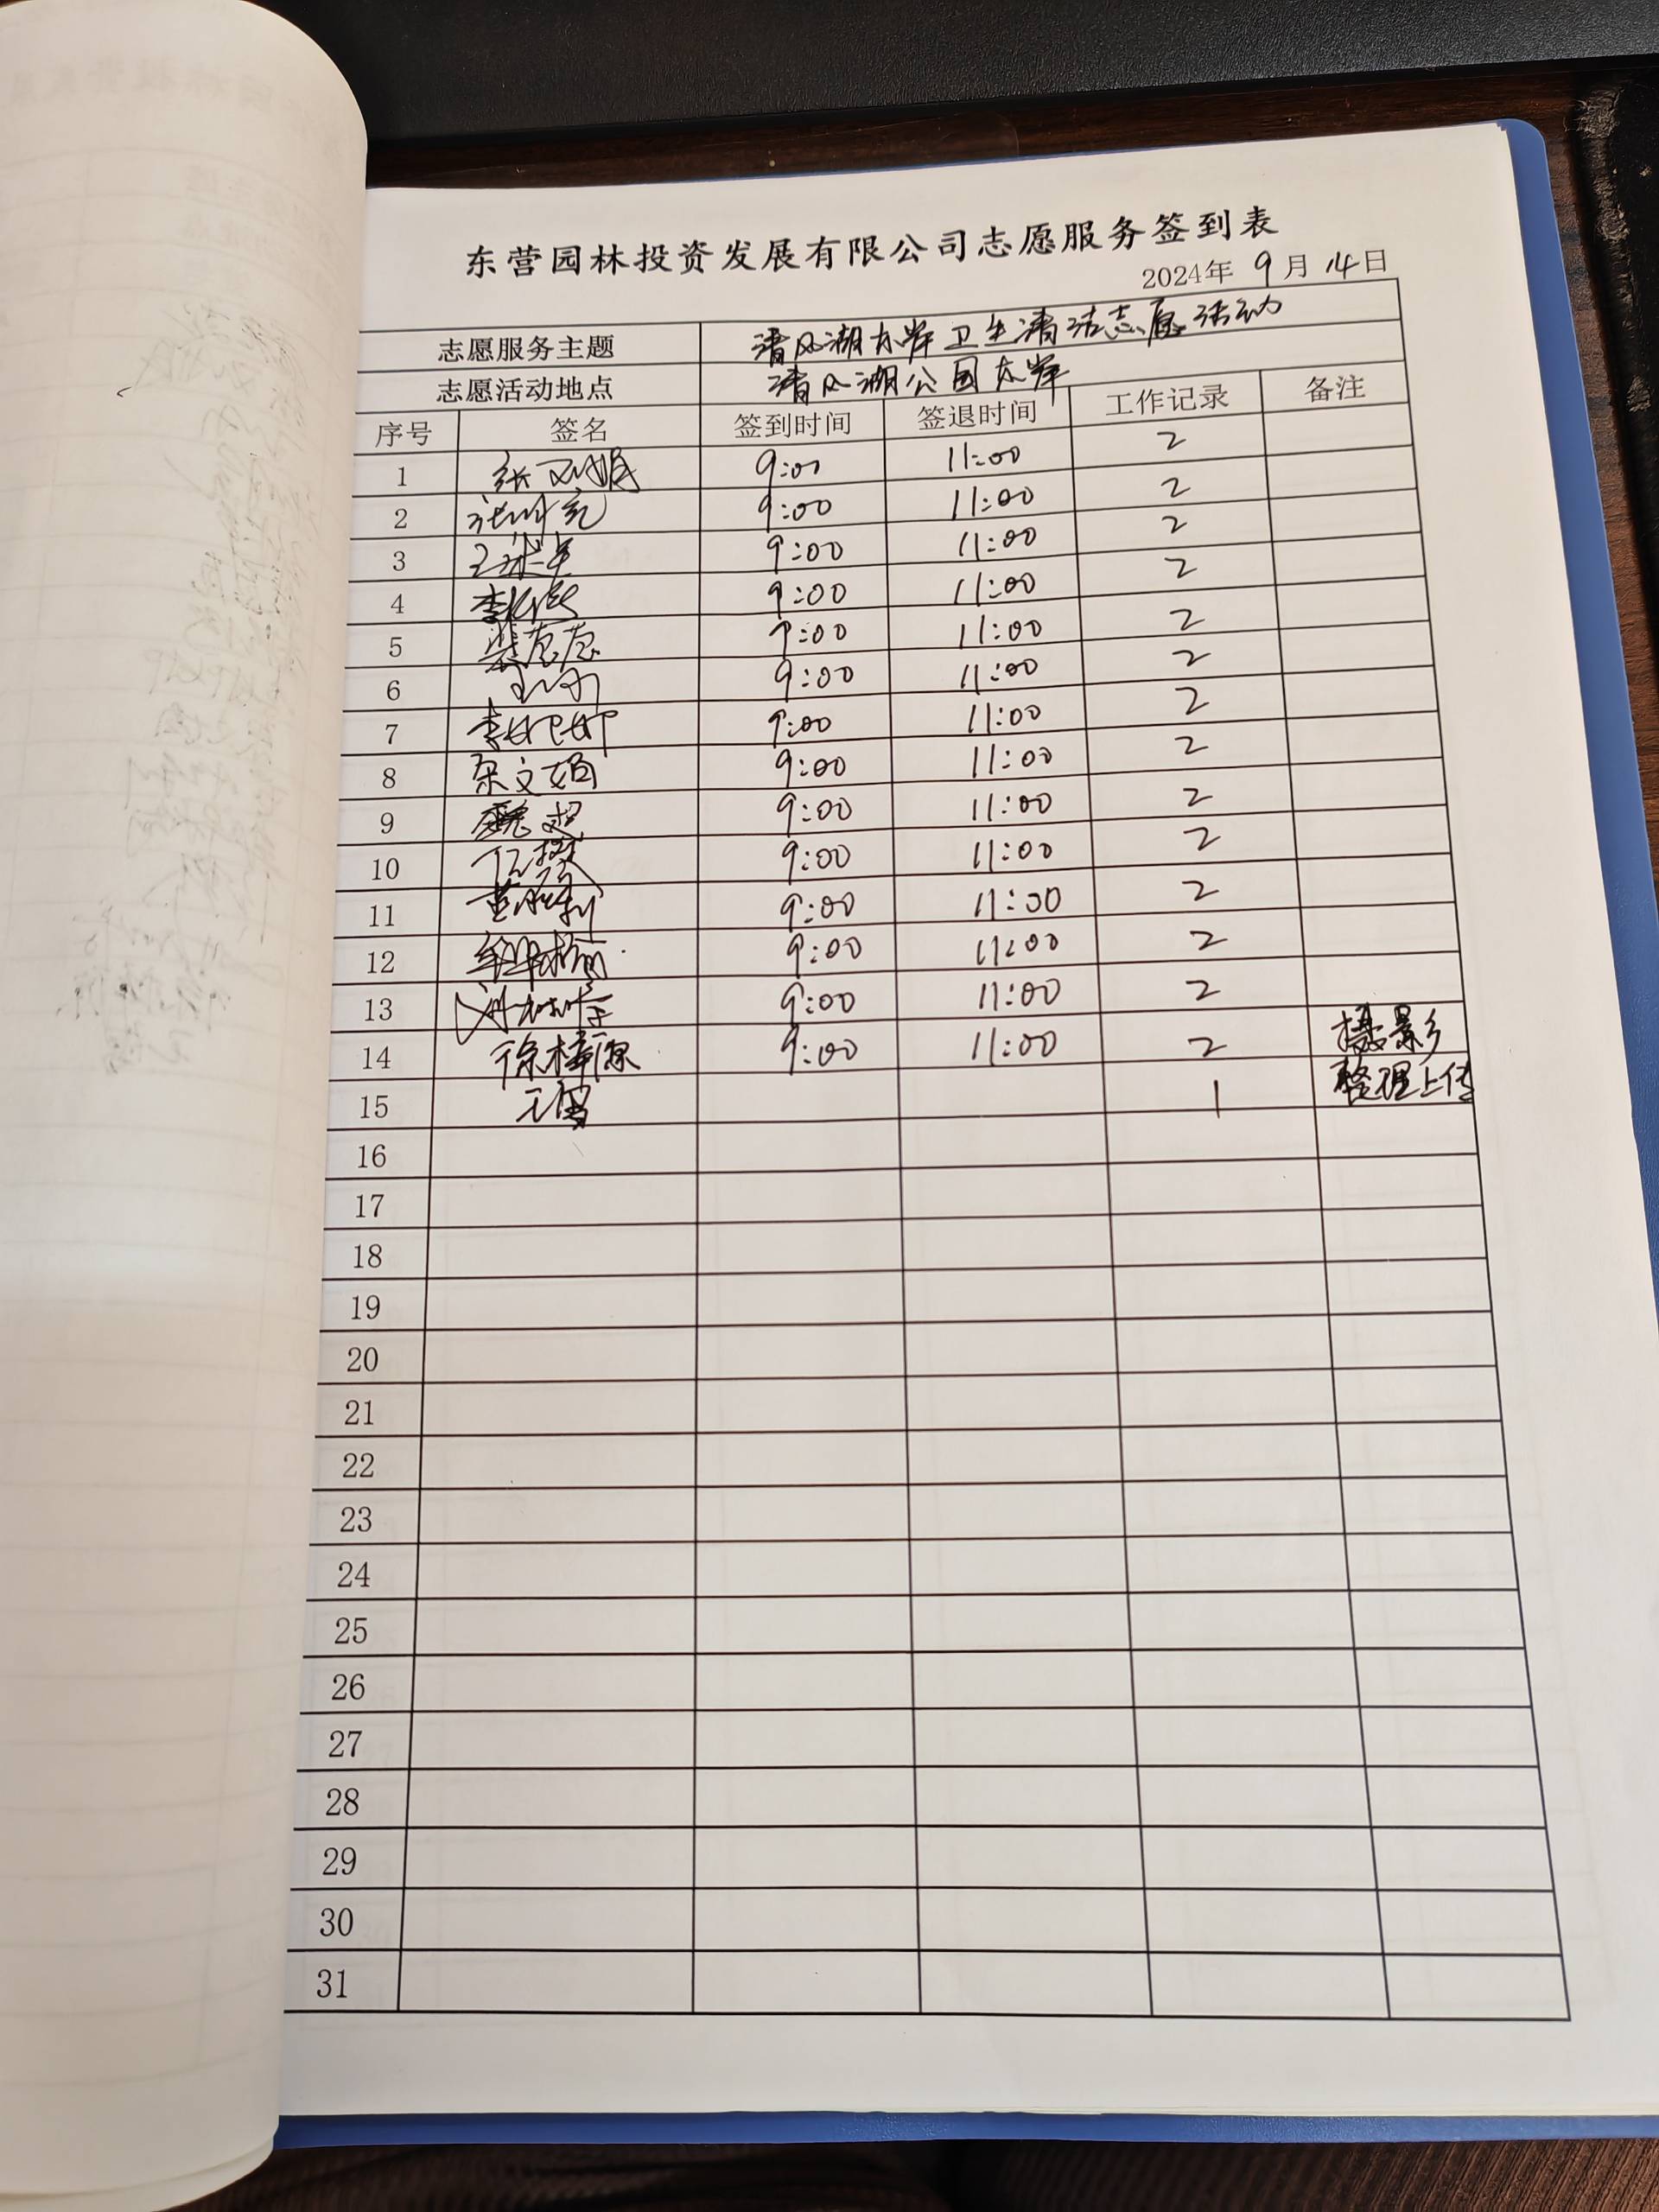 东营园林投资发展有限公司志愿服务签到表
2024年 9 月 14 日
志愿服务主题 清风湖东岸卫生清洁志愿活动
志愿活动地点 清风湖公园东岸
序号 签名 签到时间 签退时间 工作记录 备注
1 9:00 11:00 2
2 9:00 11:00 2
3 9:00 11:00 2
4 9:00 11:00 2
5 9:00 11:00 2
6 9:00 11:00 2
7 9:00 11:00 2
8 9:00 11:00 2
9 魏超 9:00 11:00 2
10 9:00 11:00 2
11 黄胜利 9:00 11:00 2
12 9:00 11:00 2
13 9:00 11:00 2
14 徐梓源 9:00 11:00 2 摄影
15 1 整理上传
16
17
18
19
20
21
22
23
24
25
26
27
28
29
30
31